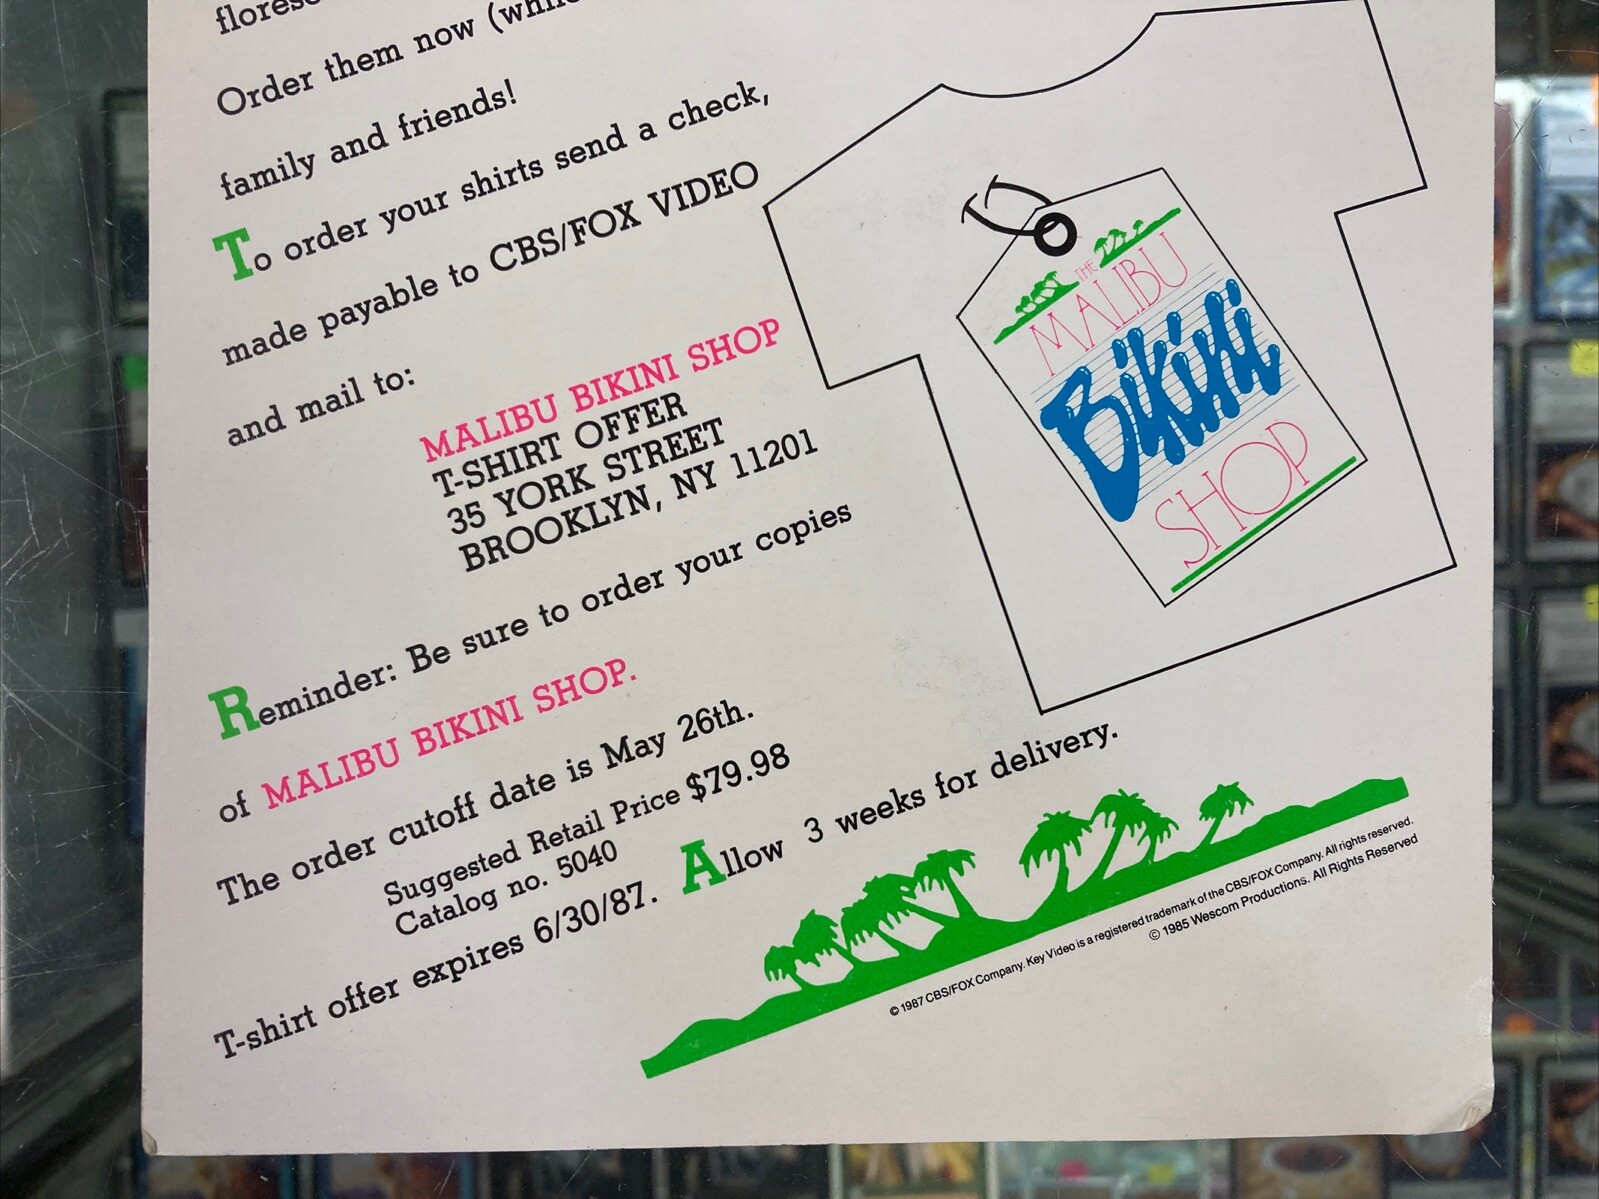 Order them now
family and friends!
To order your shirts send a check,
made payable to CBS/FOX VIDEO
and mail to:
MALIBU BIKINI SHOP
T-SHIRT OFFER
35 YORK STREET
BROOKLYN, NY 11201
Reminder: Be sure to order your copies
of MALIBU BIKINI SHOP.
The order cutoff date is May 26th.
Suggested Retail Price $79.98
Catalog no. 5040
T-shirt offer expires 6/30/87. Allow 3 weeks for delivery.
THE
MALIBU
Bikini
SHOP
© 1987 CBS/FOX Company. Key Video is a registered trademark of the CBS/FOX Company. All rights reserved.
© 1985 Wescom Productions. All Rights Reserved